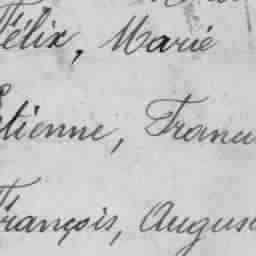 Félix, Marie
Etienne, Franc
François, Augus